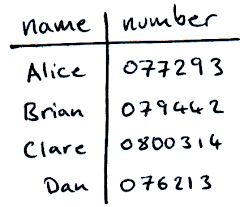 name number
Alice 077293
Brian 079442
Clare 0800314
Dan 076213